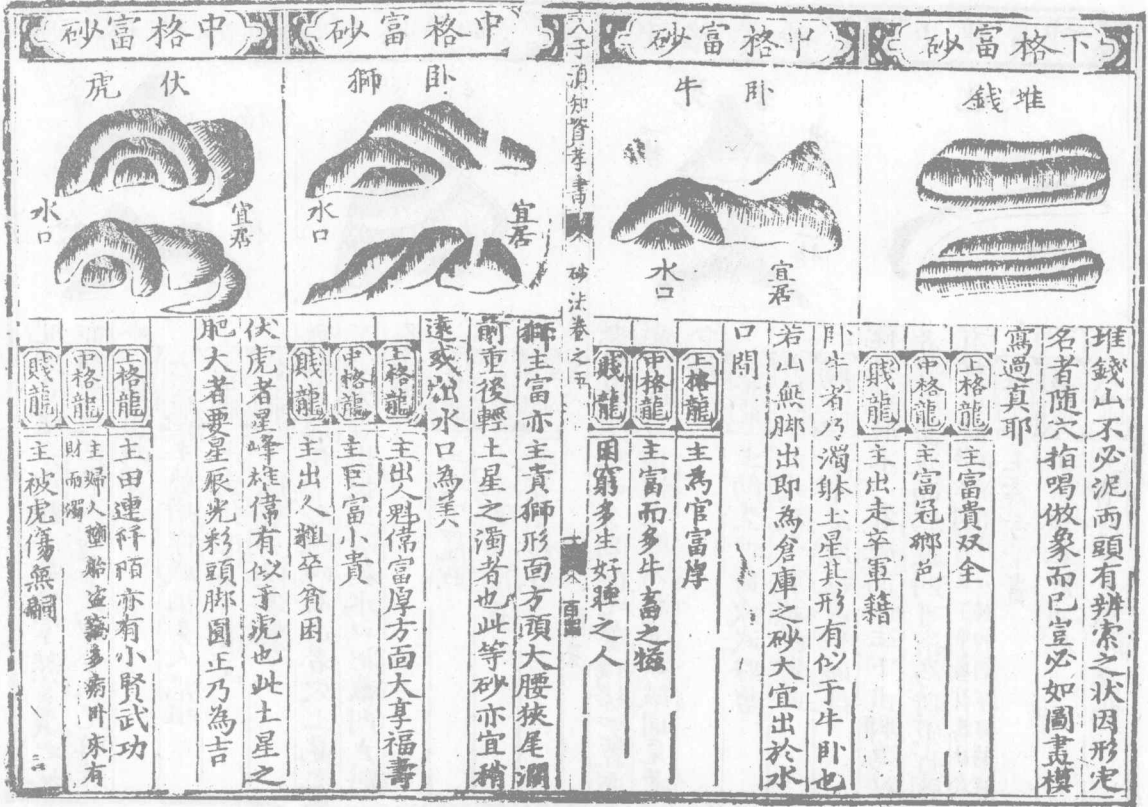 下格富砂
堆錢
堆錢山不必泥両頭有辨索之状因形定
名者随穴指喝倣象而已豈必如圖畫模
寫過真耶
上格龍
主富貴双全
中格龍
主富冠鄉邑
賎龍
主出走卒軍籍
中格富砂
卧牛
宜居
水口
卧牛者乃濁体土星其形有似于牛卧也
若山無脚出即為倉庫之砂大宜出於水
口間
上格龍
主為官富厚
中格龍
主富而多牛畜之
賎龍
困窮多生好睡之人
人子須知資孝書
砂法卷之五
中格富砂
卧獅
宜居
水口
獅主富亦主貴獅形面方頭大腰狹尾濶
前重後輕土星之濁者也此等砂亦宜稍
遠或出水口為美
上格龍
主出人魁偉富厚方面大享福壽
中格龍
主巨富小貴
賎龍
主出人粗卒貧困
中格富砂
伏虎
宜居
水口
伏虎者星峰雄偉有似于虎也此土星之
肥大者要星辰光彩頭脚圓正乃為吉
上格龍
主田連阡陌亦有小賢武功
中格龍
主婦人墮胎盗竊多病外來有
財而濁
賎龍
主被虎傷無嗣